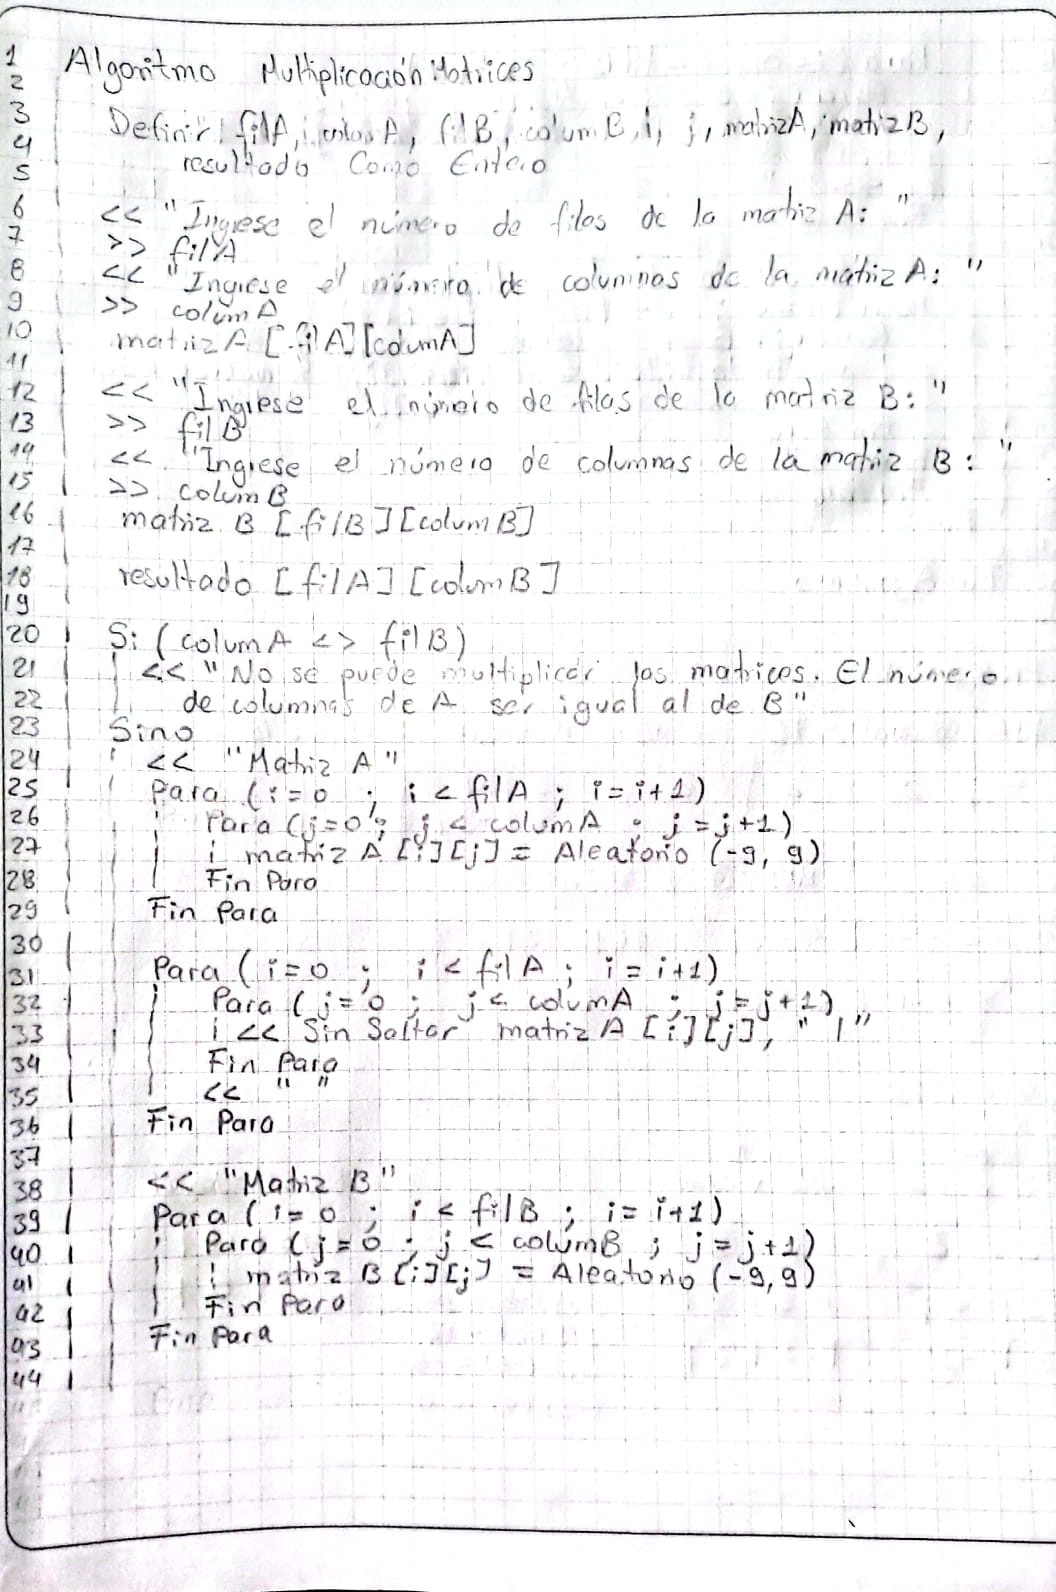 1 Algoritmo MultiplicaciónMatrices
2
3 Definir filA, columA, filB, columB, i, j, matrizA, matrizB,
4 resultado Como Entero
5
6 << "Ingrese el número de filas de la matriz A: "
7 >> filA
8 << "Ingrese el número de columnas de la matriz A: "
9 >> columA
10 matrizA [filA][columA]
11
12 << "Ingrese el número de filas de la matriz B: "
13 >> filB
14 << "Ingrese el número de columnas de la matriz B: "
15 >> columB
16 matriz B [filB][columB]
17
18 resultado [filA][columB]
19
20 Si (columA <> filB)
21 << "No se puede multiplicar las matrices. El número
22 de columnas de A ser igual al de B"
23 Sino
24 << "Matriz A"
25 Para (i=0 ; i < filA ; i=i+1)
26 Para (j=0 ; j < columA ; j=j+1)
27 matriz A [i][j] = Aleatorio (-9, 9)
28 Fin Para
29 Fin Para
30
31 Para (i=0 ; i < filA ; i=i+1)
32 Para (j=0 ; j < columA ; j=j+1)
33 << Sin Saltar matriz A [i][j], " |"
34 Fin Para
35 << " "
36 Fin Para
37
38 << "Matriz B"
39 Para (i=0 ; i < filB ; i=i+1)
40 Para (j=0 ; j < columB ; j=j+1)
41 matriz B [i][j] = Aleatorio (-9, 9)
42 Fin Para
43 Fin Para
44